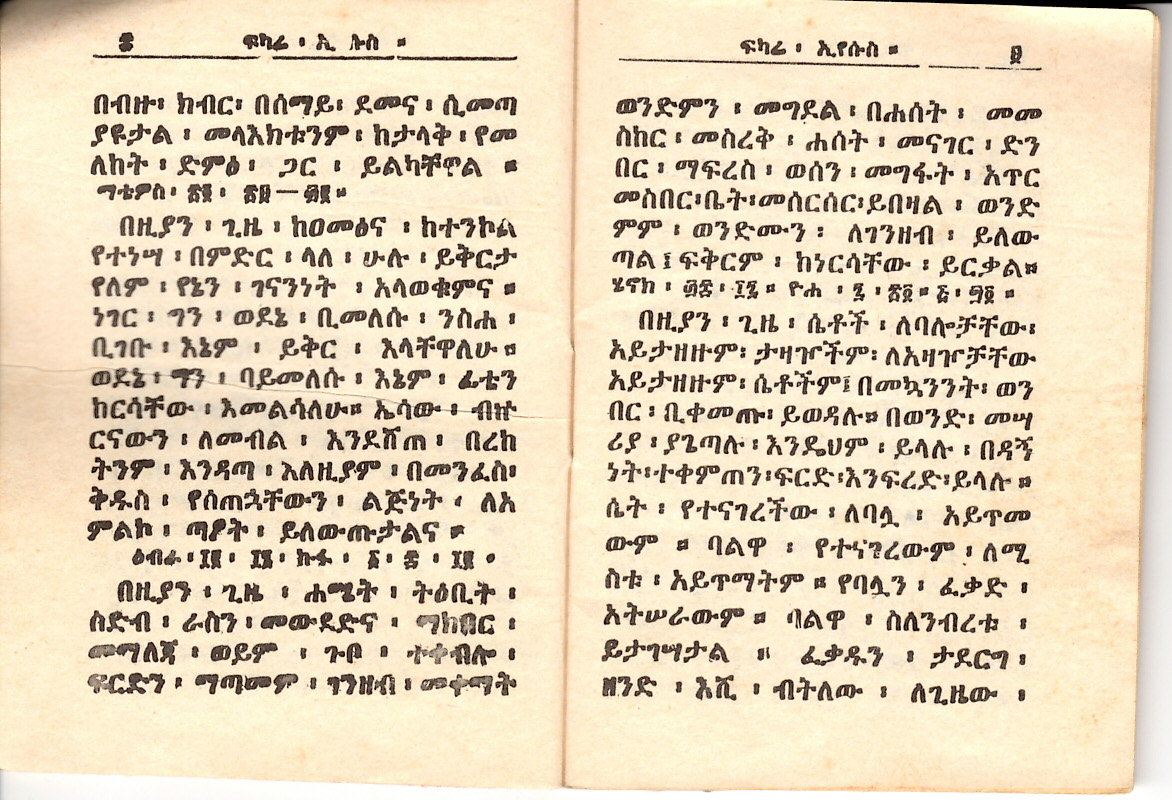 ፰ ፍካሬ ፡ ኢ ሱስ ።
በብዙ፡ ክብር፡ በሰማይ፡ ደመና ፡ ሲመጣ
ያዩታል ፡ መላእክቱንም ፡ ከታላቅ ፡ የመ
ለከት ፡ ድምፅ ፡ ጋር ፡ ይልካቸዋል ።
ማቴዎስ ፡
በዚያን ፡ ጊዜ ፡ ከዐመፅና ፡ ከተንኮል
የተነሣ ፡ በምድር ፡ ላለ ፡ ሁሉ ፡ ይቅርታ
የለም ፡ የኔን ፡ ገናንነት ፡ አላወቁምና ።
ነገር ፡ ግን ፡ ወደኔ ፡ ቢመለሱ ፡ ንስሐ ፡
ቢገቡ ፡ እኔም ፡ ይቅር ፡ እላቸዋለሁ ።
ወደኔ ፡ ግን ፡ ባይመለሱ ፡ እኔም ፡ ፊቴን
ከርሳቸው ፡ እመልሳለሁ። ኤሳው ፡ ብኵ
ርናውን ፡ ለመብል ፡ እንደሸጠ ፡ በረከ
ትንም ፡ እንዳጣ ፡ እለዚያም ፡ በመንፈስ፡
ቅዱስ ፡ የሰጠኋቸውን ፡ ልጅነት ፡ ለአ
ምልኮ ፡ ጣዖት ፡ ይለውጡታልና ።
ዕብራ ፡ ፲፪ ፡ ፲፮ ፡ ኩፋ ፡
በዚያን ፡ ጊዜ ፡ ሐሜት ፡ ትዕቢት ፡
ስድብ ፡ ራስን ፡ መውደድና ፡ ማክበር ፡
መማለጃ ፡ ወይም ፡ ጉቦ ፡ ተቀብሎ ፡
ፍርድን ፡ ማጣመም ፡ ገንዘብ ፡ መቀማት
ፍካሬ ፡ ኢየሱስ ። ፱
ወንድምን ፡ መግደል ፡ በሐሰት ፡ መመ
ስከር ፡ መስረቅ ፡ ሐሰት ፡ መናገር ፡ ድን
በር ፡ ማፍረስ ፡ ወሰን ፡ መግፋት ፡ አጥር
መስበር፡ቤት፡መሰርሰር፡ይበዛል ፡ ወንድ
ምም ፡ ወንድሙን ፡ ለገንዘብ ፡ ይለው
ጣል ፤ ፍቅርም ፡ ከነርሳቸው ፡ ይርቃል።
ሄኖክ ፡ ዮሐ ፡
በዚያን ፡ ጊዜ ፡ ሴቶች ፡ ለባሎቻቸው፡
አይታዘዙም፡ ታዛዦችም፡ ለአዛዦቻቸው
አይታዘዙም፡ ሴቶችም፤ በመኳንንት፡ ወን
በር ፡ ቢቀመጡ፡ ይወዳሉ። በወንድ፡ መሣ
ሪያ ፡ ያጌጣሉ ፡ እንዴህም ፡ ይላሉ ፡ በዳኝ
ነት፡ተቀምጠን፡ፍርድ፡እንፍረድ፡ይላሉ ።
ሴት ፡ የተናገረችው ፡ ለባሏ ፡ አይጥመ
ውም ። ባልዋ ፡ የተናገረውም ፡ ለሚ
ስቱ ፡ አይጥማትም ። የባሏን ፡ ፈቃድ ፡
አትሠራውም ። ባልዋ ፡ ስለንብረቱ ፡
ይታገሣታል ። ፈቃዱን ፡ ታደርግ ፡
ዘንድ ፡ እሺ ፡ ብትለው ፡ ለጊዜው ፡